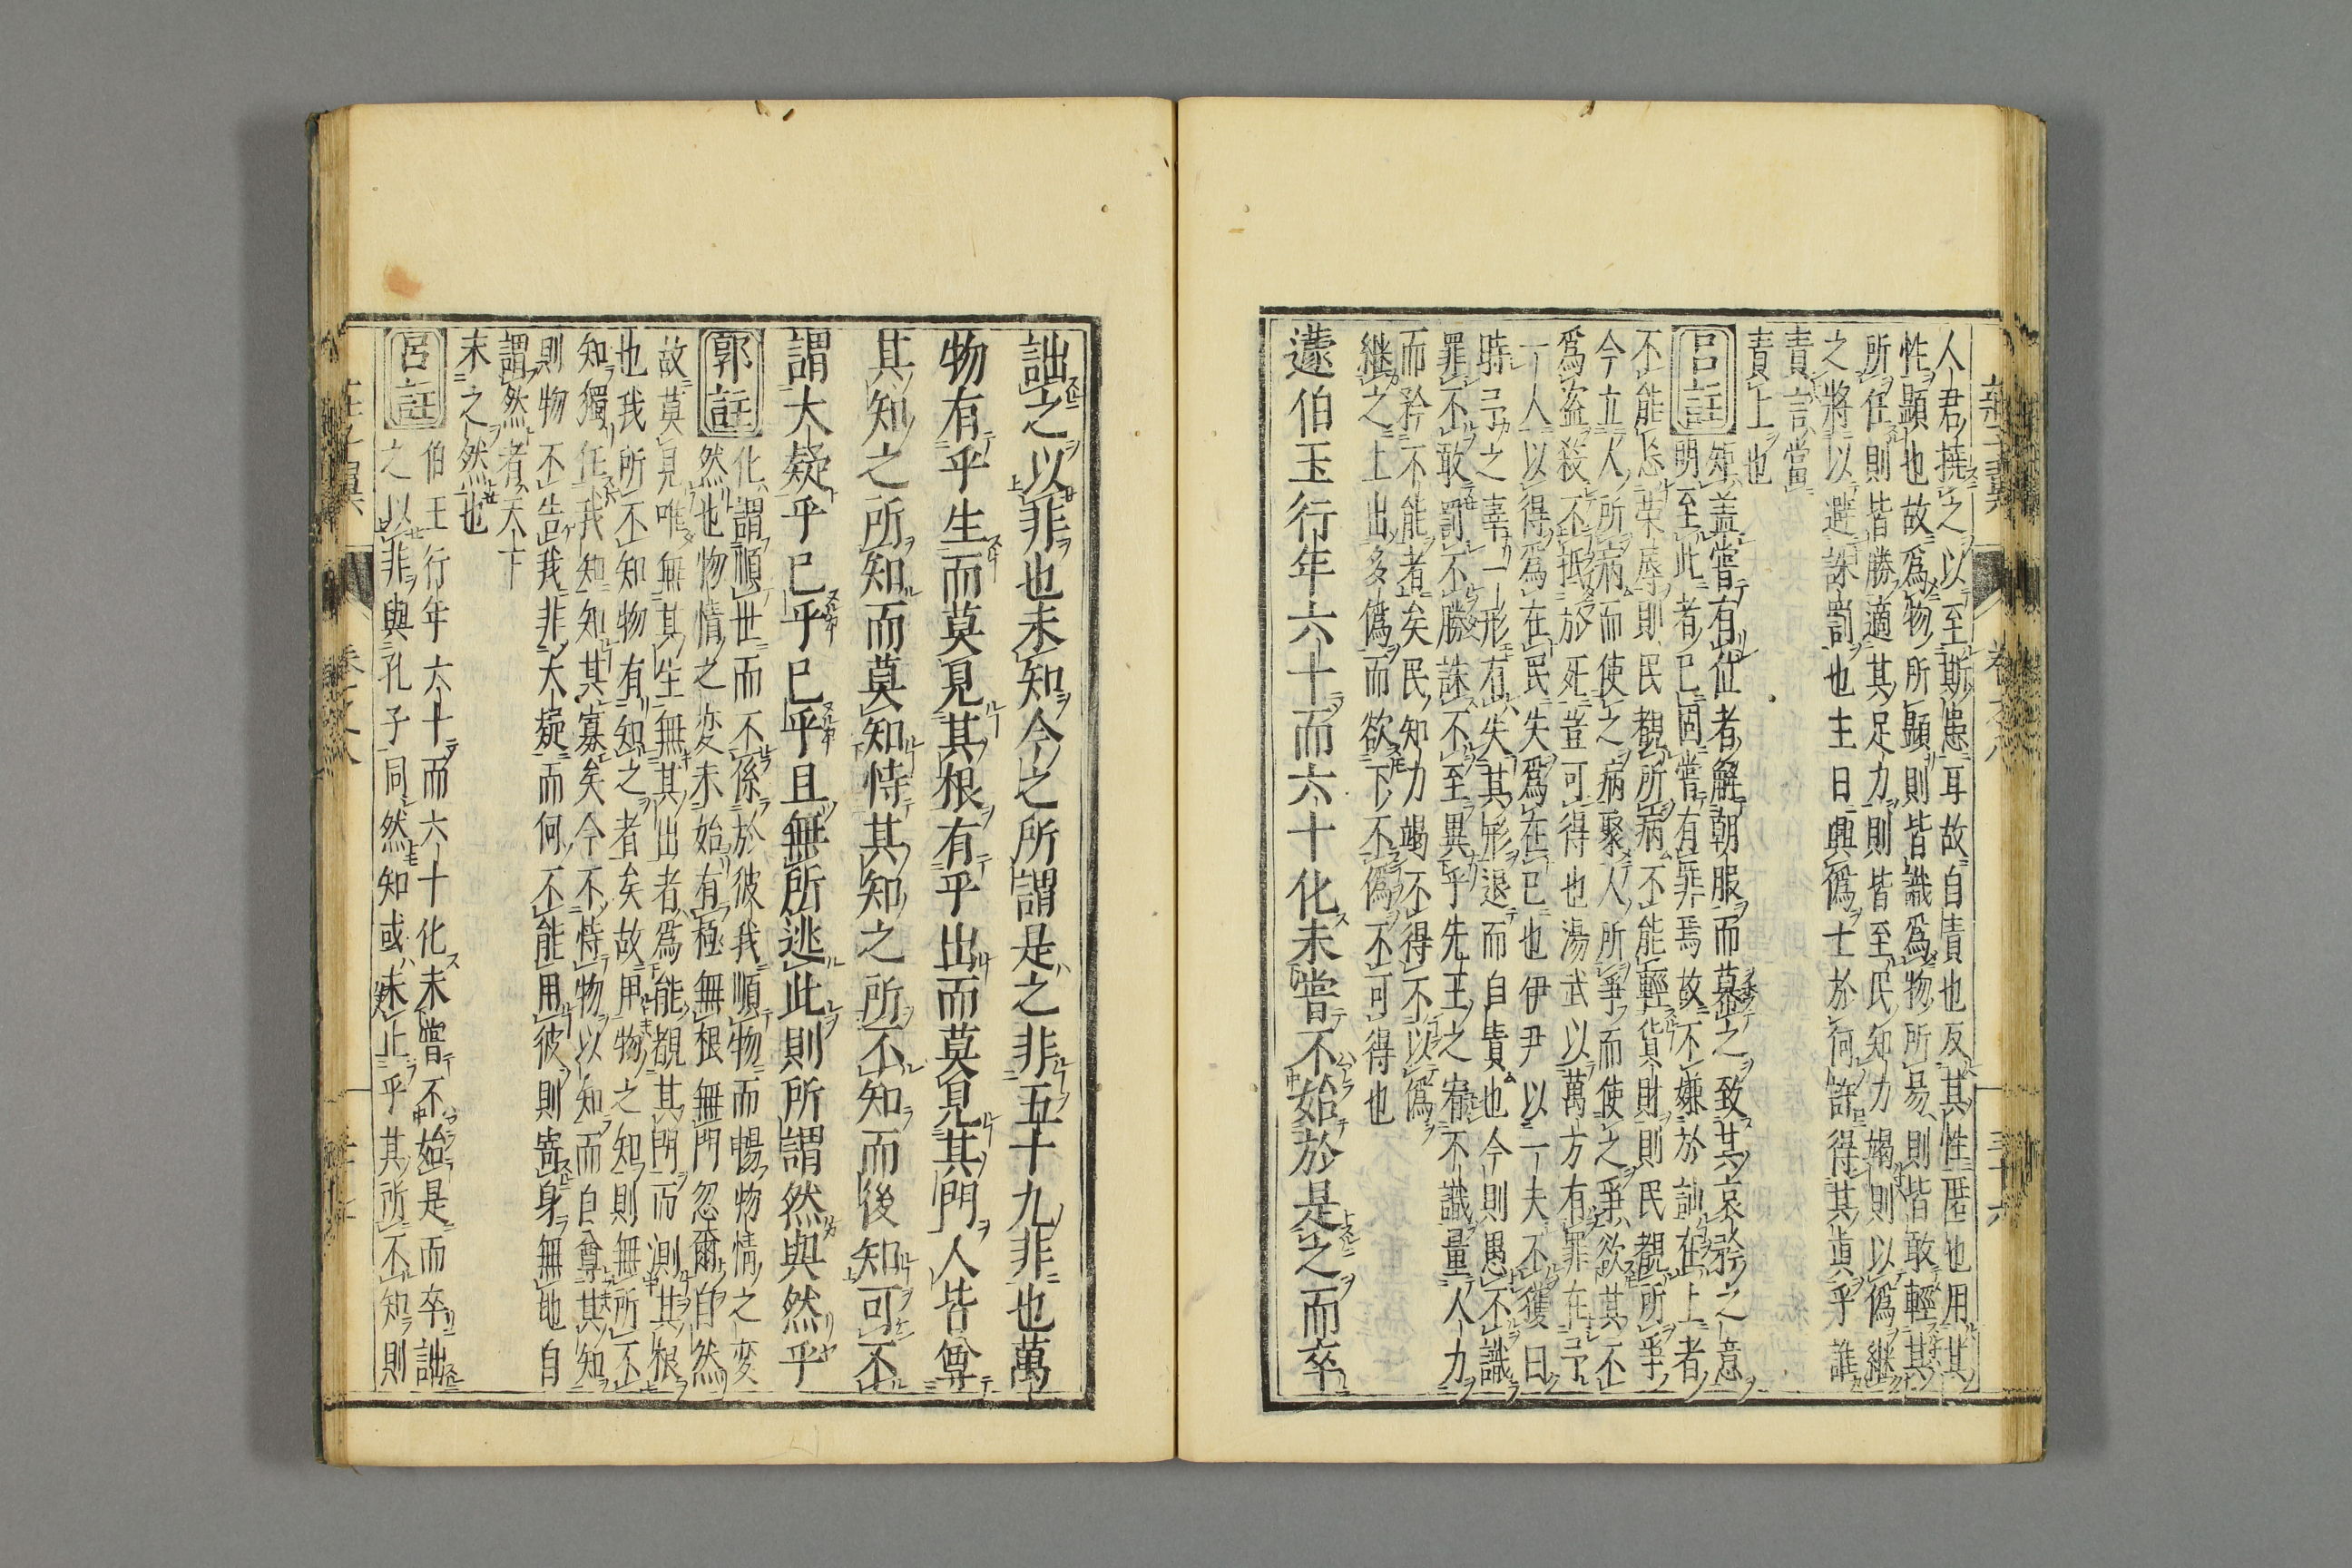 人君撓之以至斯患耳故自責也反其性匿也用其
性顯也故爲物所顯則皆識爲物所易則皆敢輕其
所任則皆勝適其足力則皆至民知力竭則以偽継
之將以避誅罰也主日興偽士於何許得其眞乎誰
責言當
責上也
呂註
矩盖嘗有位者解朝服而幕之致其哀矜之意
明至此者已固嘗有罪焉故不嫌於訕在上者
不能忘榮辱則民覩所病不能輕貨財則民覩所爭
今立人所病而使之病聚人所爭而使之爭欲其不
爲盗殺不抵於死豈可得也湯武以萬方有罪在予
一人以得爲在民失爲在已也伊尹以一夫不獲曰
時予之辜一形有失其形退而自責也今則愚不識
罪不敢罰不勝誅不至異乎先王之宥不識量人力
而矜不能者矣民知力竭不得不以偽
継之上出多偽而欲下不偽不可得也
蘧伯玉行年六十而六十化未嘗不始於是之而卒
詘之以非也未知今之所謂是之非五十九非也萬
物有乎生而莫見其根有乎出而莫見其門人皆尊
其知之所知而莫知恃其知之所不知而後知可不
謂大疑乎已乎已乎且無所逃此則所謂然與然乎
郭註
化謂順世而不係於彼我順物而暢物情之変
然也物情之変未始有極無根無門忽爾自然
故莫見唯無其生無其出者爲能覩其門而測其根
也我所不知物有知之者矣故用物之知則無所不
知獨任我知知其寡矣今不恃物以知而自尊其知
則物不告我非大疑而何不能用彼則寄身無地自
謂然者天下
未之然也
呂註
伯玉行年六十而六十化未嘗不始是而卒詘
之以非與孔子同然知或未止乎其所不知則